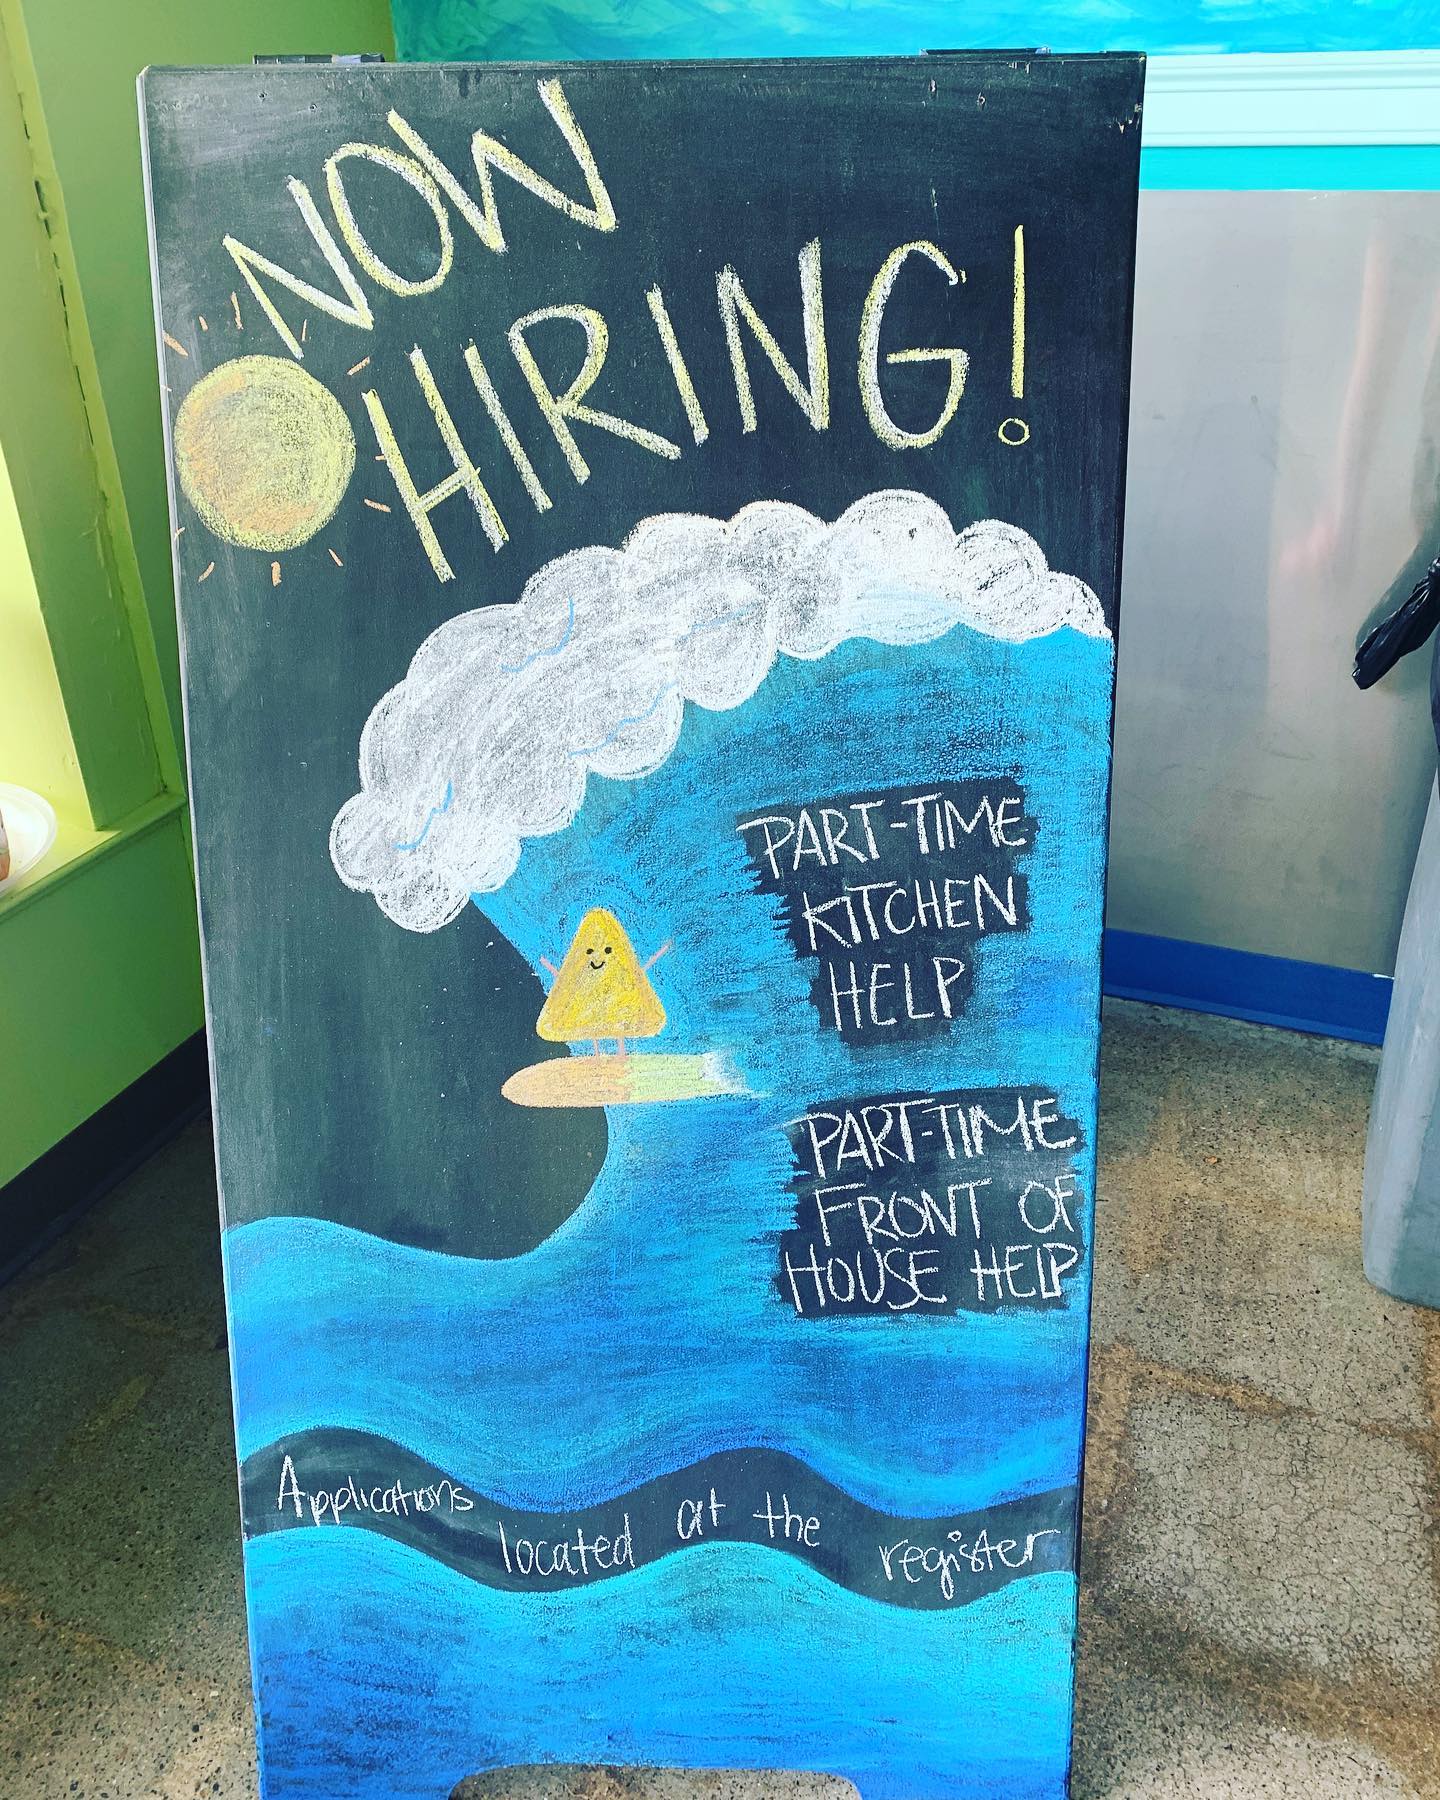 NOW
HIRING!
PART-TIME
KITCHEN
HELP
PART-TIME
FRONT OF
HOUSE HELP
Applications located at the register